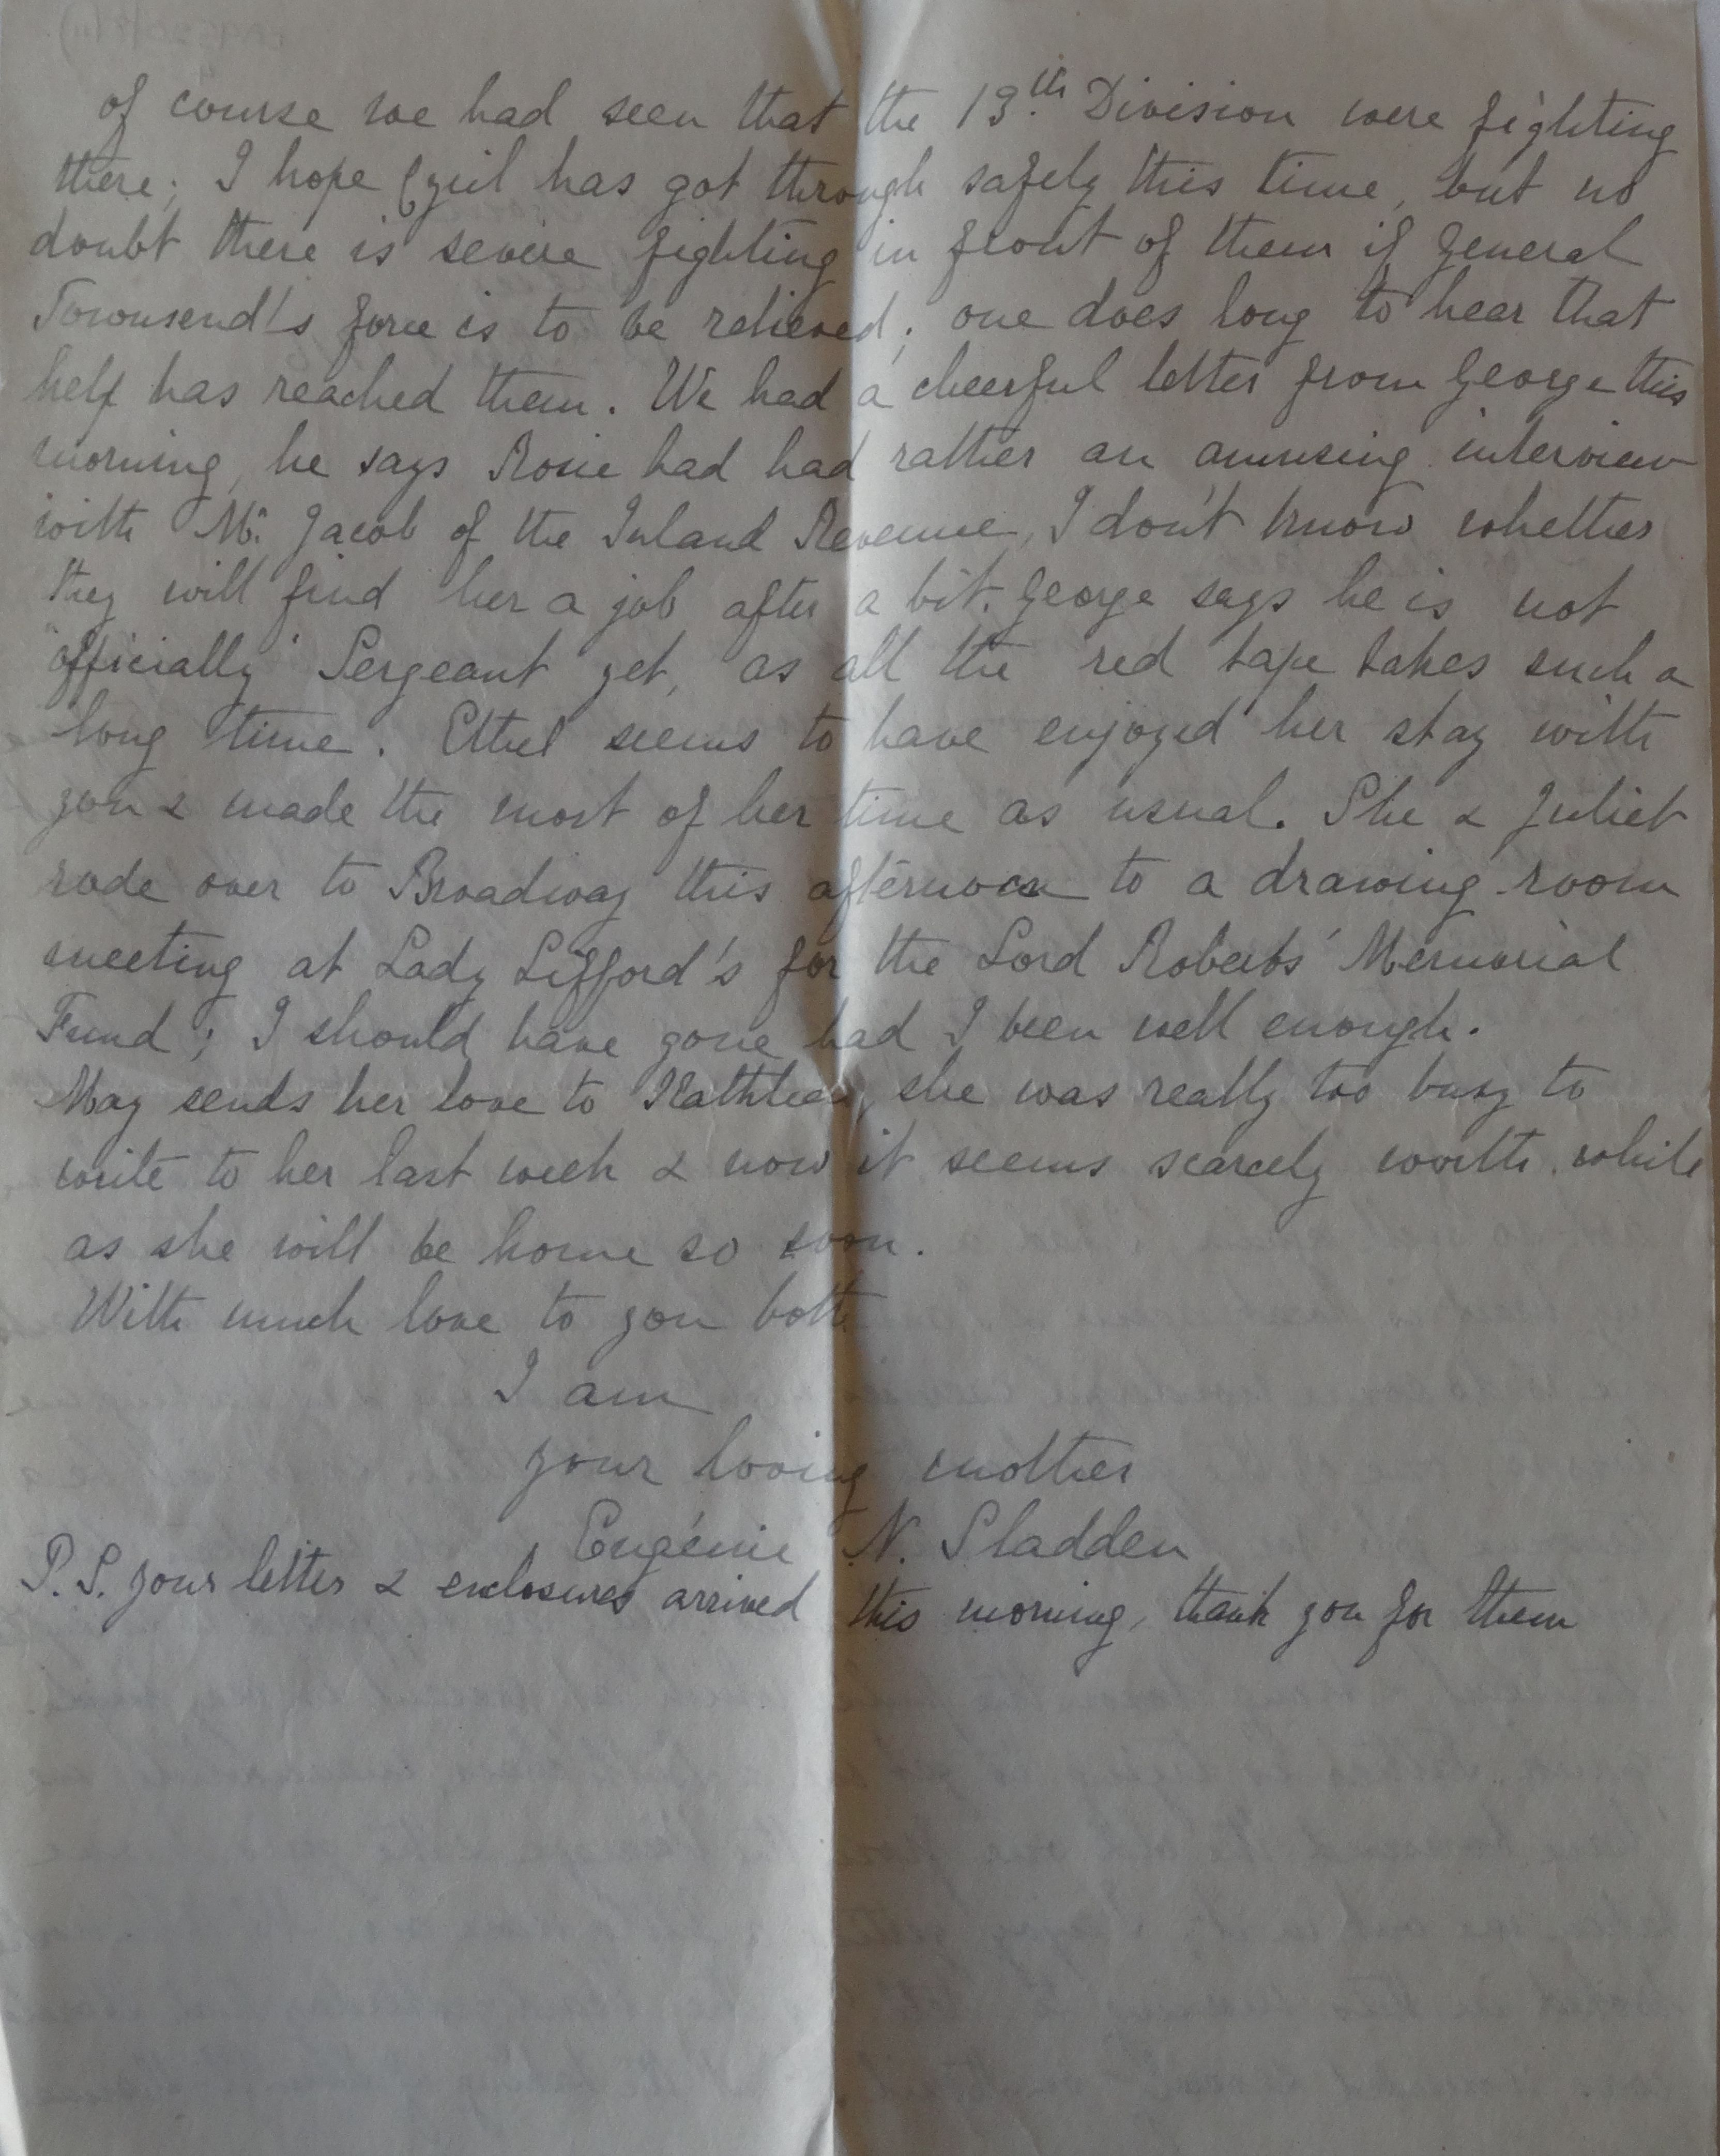 of course we had seen that the 13th Division were fighting
there; I hope Cyril has got through safely this time, but no
doubt there is severe fighting in front of them if General
Townsend's force is to be relieved; one does long to hear that
help has reached them. We had a cheerful letter from George this
morning, he says Rosie had had rather an amusing interview
with Mr. Jacob of the Inland Revenue, I don't know whether
they will find her a job after a bit. George says he is not
"officially" Sergeant yet, as all the red tape takes such a
long time. Ethel seems to have enjoyed her stay with
you & made the most of her time as usual. She & Juliet
rode over to Broadway this afternoon to a drawing-room
meeting at Lady Lifford's for the Lord Roberts' Memorial
Fund; I should have gone had I been well enough.
May sends her love to Kathleen, she was really too busy to
write to her last week & now it seems scarcely worth while
as she will be home so soon.
With much love to you both
I am
your loving mother
Eugénie N. Sladden
P.S. your letter & enclosures arrived this morning, thank you for them